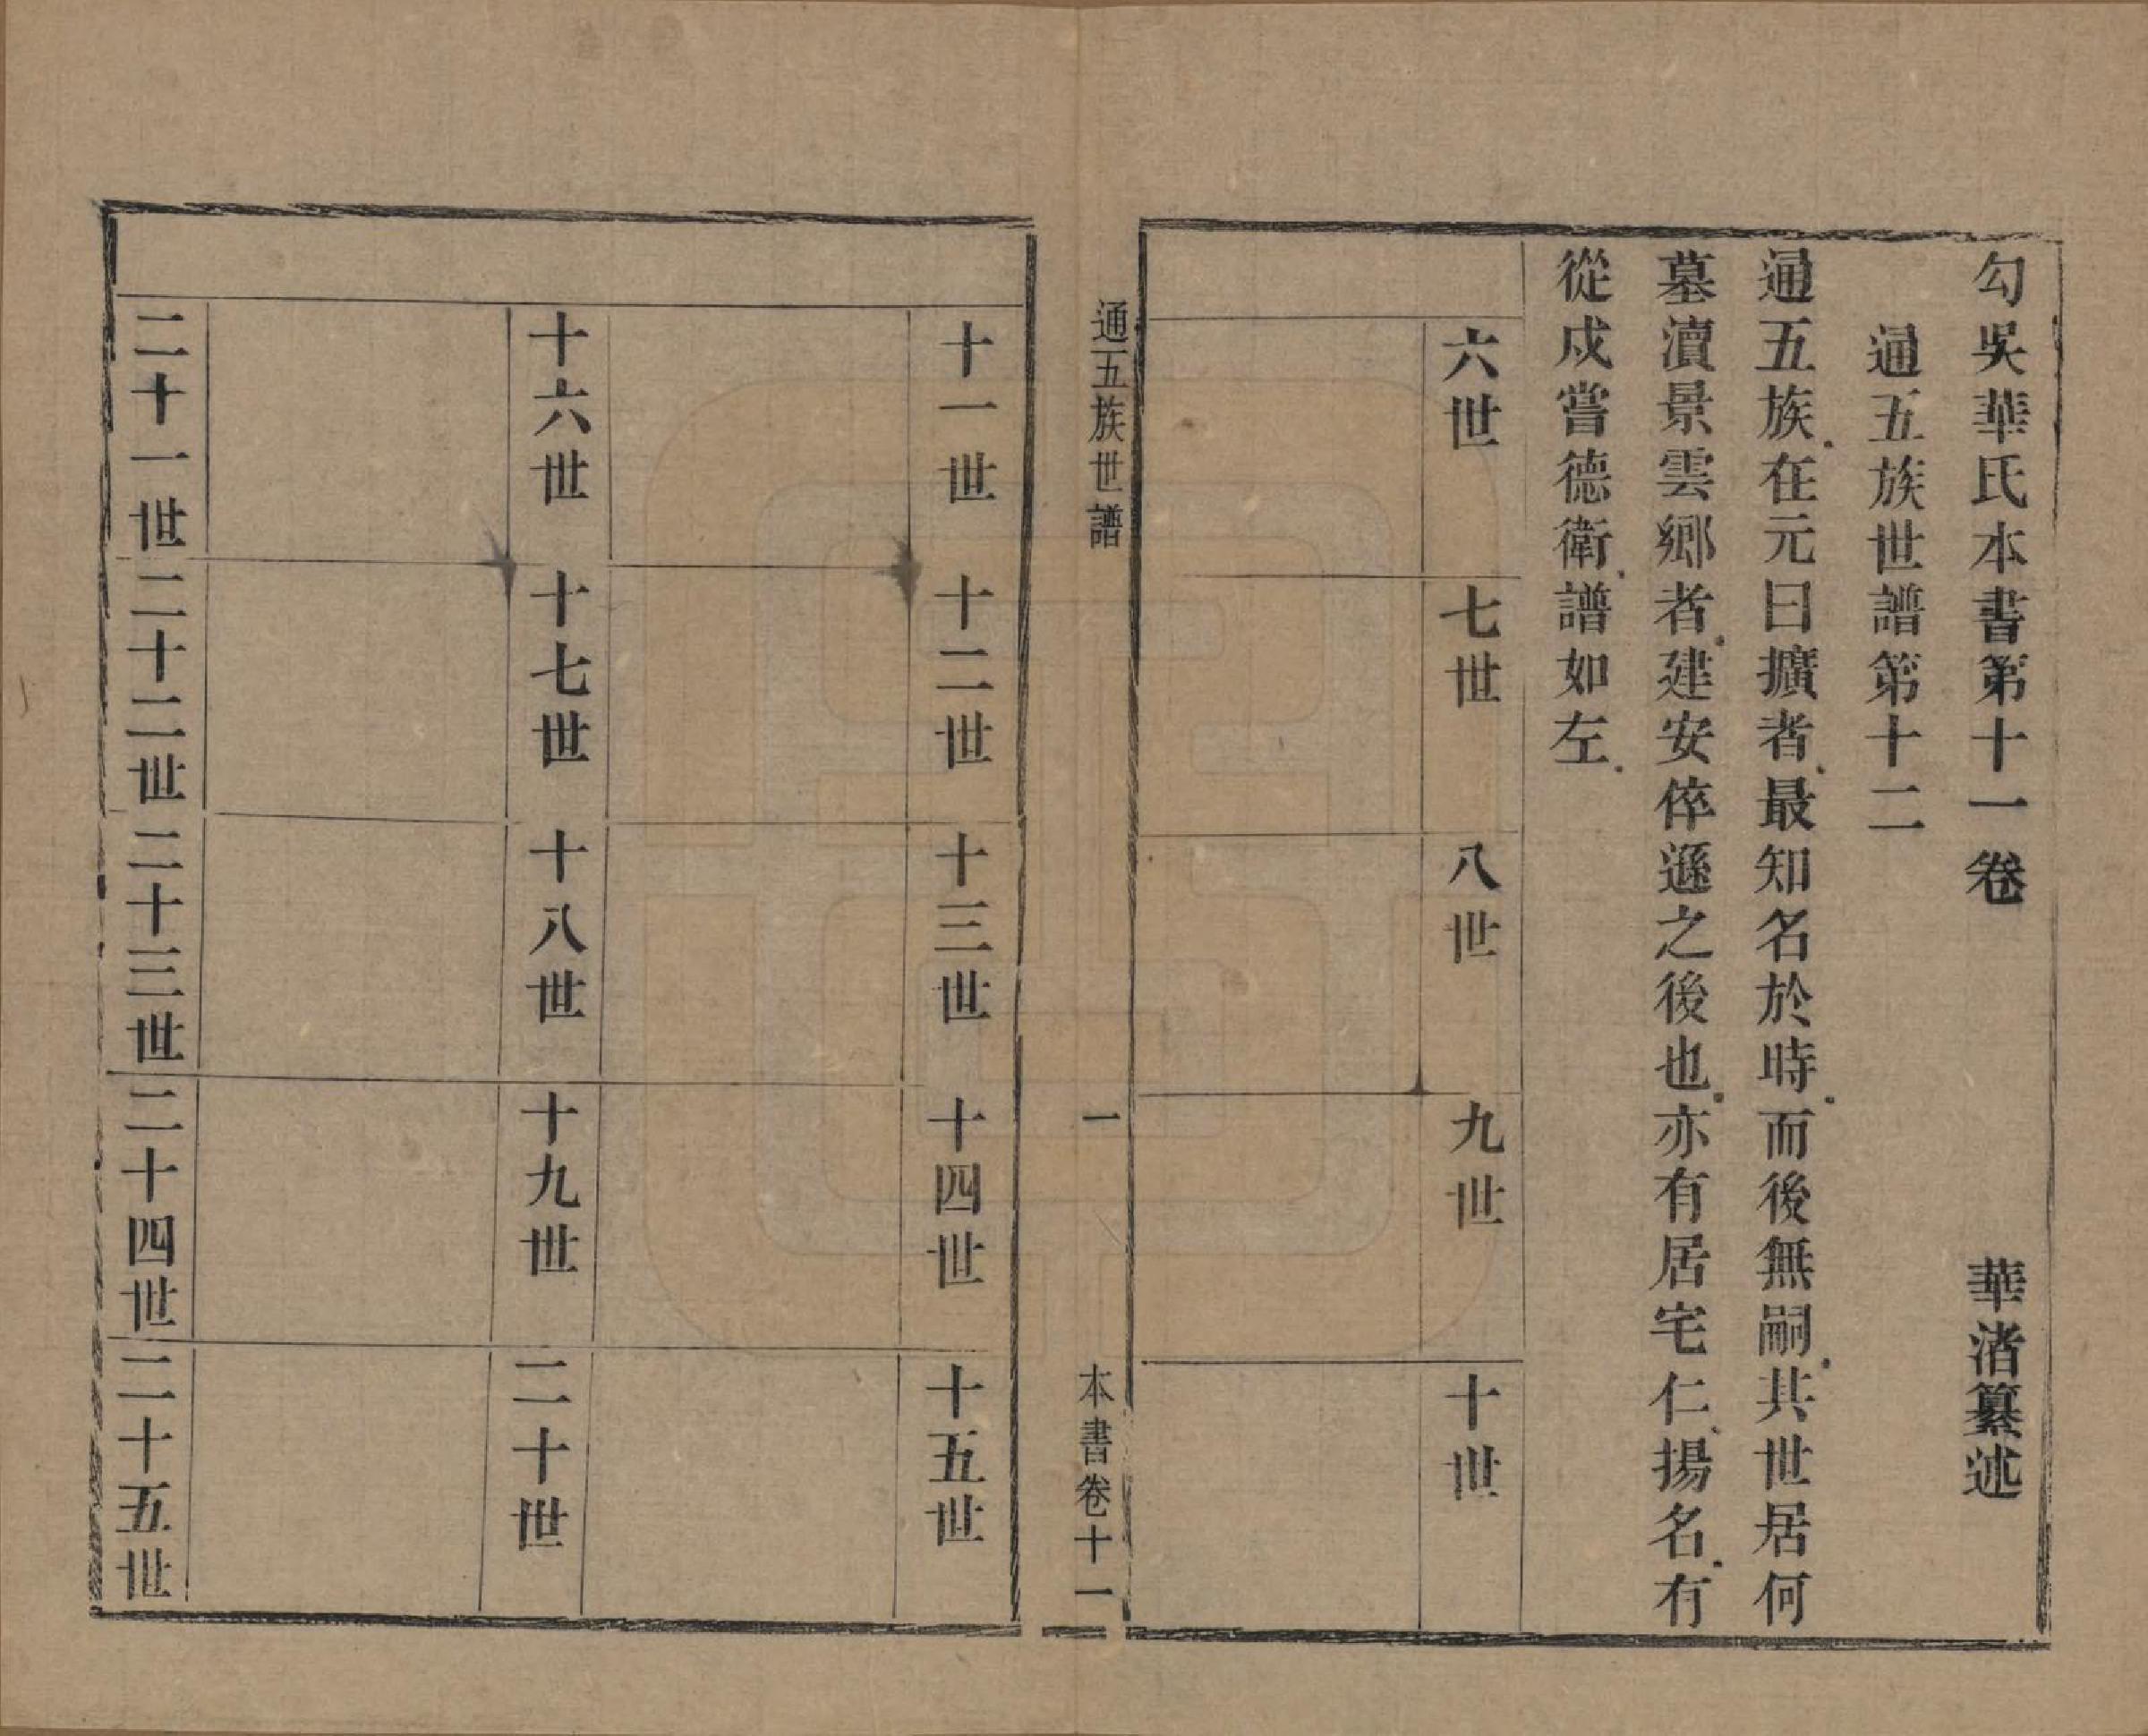 勾吳華氏本書第十一卷　華渚纂述
通五族世譜第十二
通五族在元曰擴者最知名於時而後無嗣其世居何
墓瀆景雲鄉者建安倅遜之後也亦有居宅仁揚名有
從戍嘗德衛譜如左
六世　七世　八世　九世　十世
通五族世譜　一　本書卷十一
十一世　十二世　十三世　十四世　十五世
十六世　十七世　十八世　十九世　二十世
二十一世　二十二世　二十三世　二十四世　二十五世